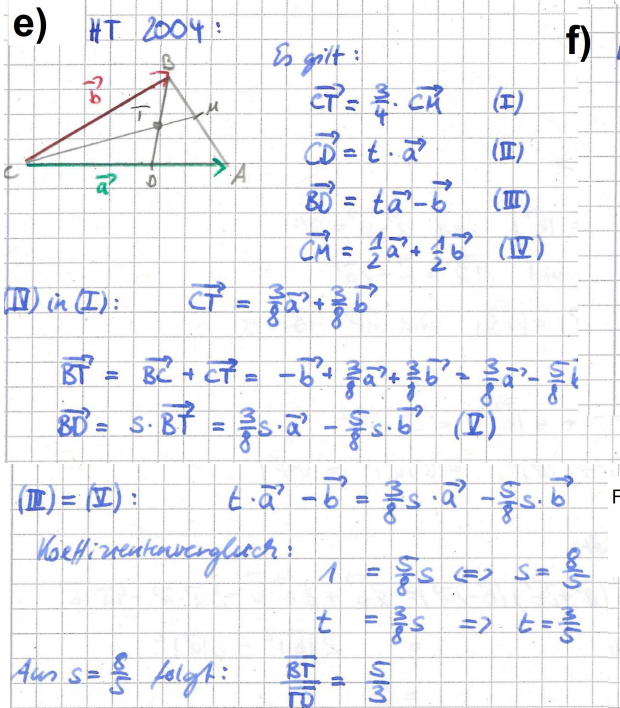 e) HT 2004: f)
B
b⃗ T M
C a⃗ D A
Es gilt:
CT⃗ = 3/4 · CM⃗ (I)
CD⃗ = t · a⃗ (II)
BD⃗ = ta⃗ - b⃗ (III)
CM⃗ = 1/2 a⃗ + 1/2 b⃗ (IV)
(IV) in (I): CT⃗ = 3/8 a⃗ + 3/8 b⃗
BT⃗ = BC⃗ + CT⃗ = -b⃗ + 3/8 a⃗ + 3/8 b⃗ = 3/8 a⃗ - 5/8
BD⃗ = s · BT⃗ = 3/8 s · a⃗ - 5/8 s · b⃗ (V)
(III) = (V): t · a⃗ - b⃗ = 3/8 s · a⃗ - 5/8 s · b⃗ F
Koeffizientenvergleich:
1 = 5/8 s <=> s = 8/5
t = 3/8 s => t = 3/5
Aus s = 8/5 folgt: BT/TD = 5/3